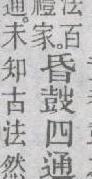 法百
禮家。
昏鼔四通
通。未知古法然